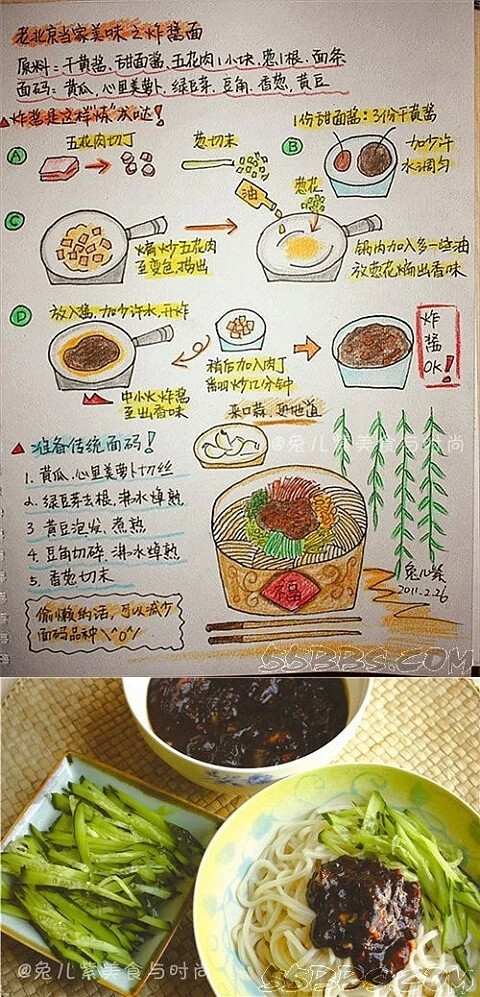 老北京当家美味之炸酱面
原料：干黄酱、甜面酱、五花肉1小块、葱1根、面条
面码：黄瓜、心里美萝卜、绿豆芽、豆角、香葱、黄豆
炸酱是这样"炼"成哒！
1份甜面酱：3份干黄酱
A
五花肉切丁
葱切末
B
加少许
水调匀
C
煸炒五花肉
至变色，捞出
油
葱花
锅内加入多一些油
放葱花煸出香味
D
放入酱，加少许水，开炸
中小火炸酱
至出香味
稍后加入肉丁
翻炒几分钟
炸
酱
OK！
来口蒜，更地道
@兔儿紫美食与时尚
准备传统面码！
1. 黄瓜、心里美萝卜切丝
2. 绿豆芽去根，沸水焯熟
3 黄豆泡发、煮熟
4. 豆角切碎，沸水焯熟
5. 香葱切末
偷懒的话，可以减少
面码品种 \^o^/
福
兔儿紫
2011.2.26
55BBS.COM
@兔儿紫美食与时尚
55BBS.COM